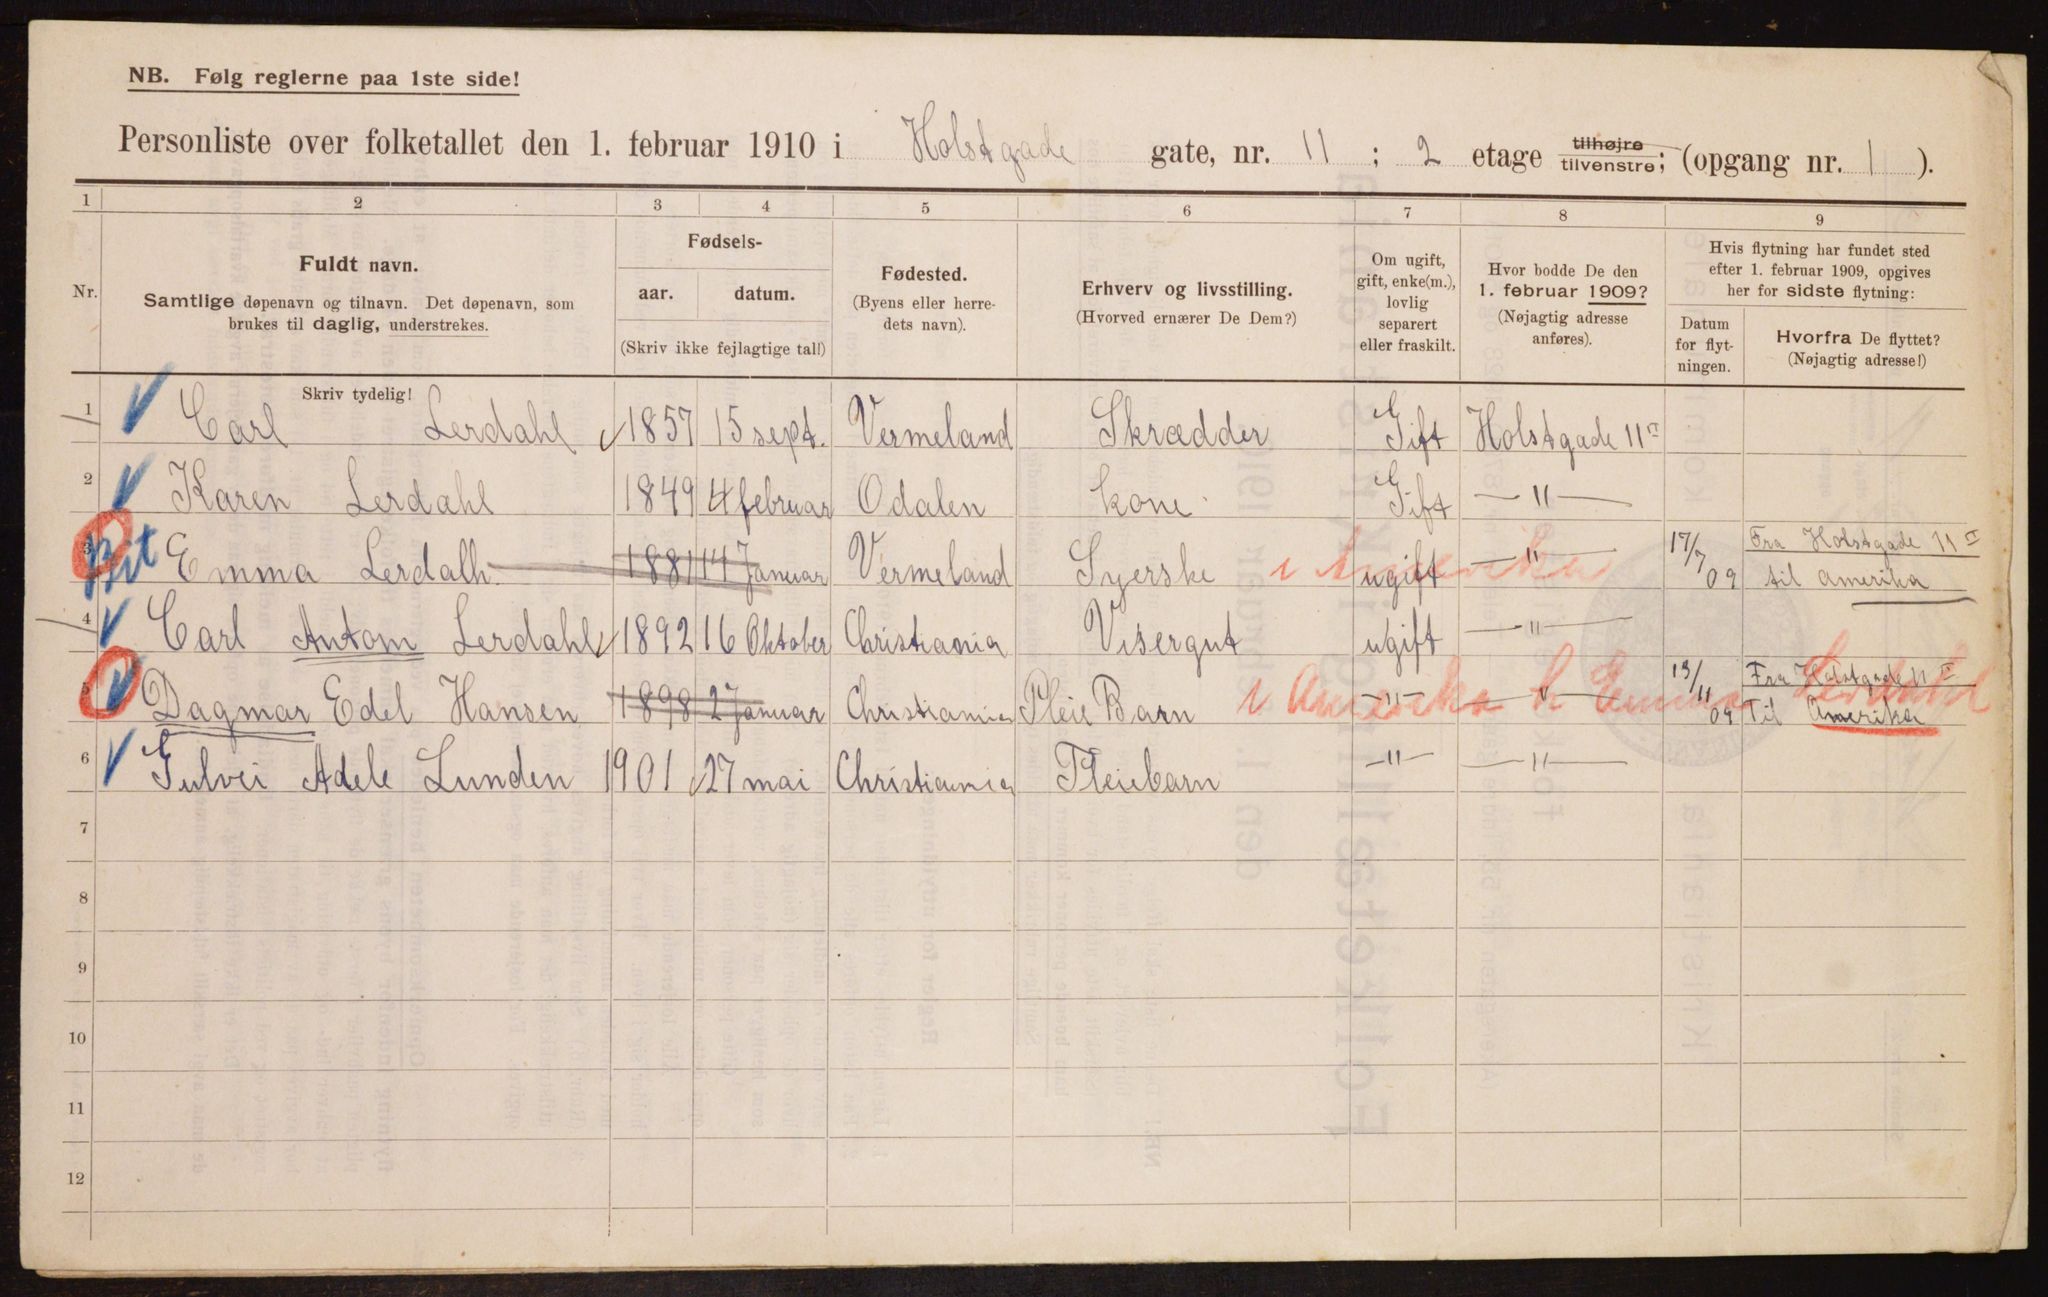 NB. Følg reglerne paa 1ste side!
Personliste over folketallet den 1. februar 1910 i Holstgade gate, nr. 11 ; 2 etage tilhøjre tilvenstre; (opgang nr. 1 ).
1 2 3 4 5 6 7 8 9
Nr.
Fuldt navn.
Samtlige døpenavn og tilnavn. Det døpenavn, som
brukes til daglig, understrekes.
Fødsels-
aar. datum.
(Skriv ikke fejlagtige tal!)
Fødested.
(Byens eller herre-
dets navn).
Erhverv og livsstilling.
(Hvorved ernærer De Dem?)
Om ugift,
gift, enke(m.),
lovlig
separert
eller fraskilt.
Hvor bodde De den
1. februar 1909?
(Nøjagtig adresse
anføres).
Hvis flytning har fundet sted
efter 1. februar 1909, opgives
her for sidste flytning:
Datum
for flyt-
ningen.
Hvorfra De flyttet?
(Nøjagtig adresse!)
Skriv tydelig!
1 Carl Lerdahl 1857 15 sept. Vermeland Skrædder Gift Holstgade 11 II
2 Karen Lerdahl 1849 4 februar Odalen kone Gift — " —
3 Bit Emma Lerdalh 1881 14 Januar Vermeland Syerske i Amerika ugift — " — 17/7 09 Fra Holstgade 11 II
til amerika
4 Carl Antom Lerdahl 1892 16 Oktober Christiania Visergut ugift — " —
5 Dagmar Edel Hansen 1898 2 Januar Christiania Pleie Barn i Amerika — " — — " — Emma Lerdahl 13/11 09 Fra Holstgade 11 II
Til Amerika
6 Gulvei Adele Lunden 1901 27 mai Christiania Pleiebarn — " — — " —
7
8
9
10
11
12